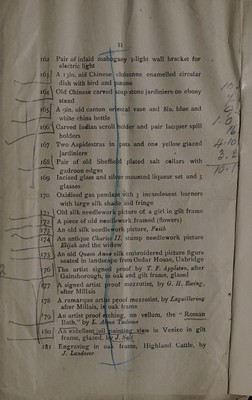 11
162 Pair of inlaid mahogany 3-light wall bracket for
electric light
163 A 13in. old Chinese cloisonne enamelled circular
dish with bird and
164 Old Chinese carved soap stone jardiniere on ebony
stand
165 A 9in. old canton oriental vase and 8in. blue and
white china bottle
166 Carved Indian scroll holder and pair lacquer spill
holders
167 Two Aspidestras in pots and one yellow glazed
jardiniere
168 Pair of old Sheffield plated salt cellars with
gadroon edges
169 Incised glass and silver mounted liqueur set and 3
glasses
170 Oxidised gem pendant with 3 incandescent burners
with large silk shade and fringe
171 Old silk needlework picture of a girl in gilt frame
172 A piece of old needlework framed (flowers)
173 An old silk needlework picture, Faith
174 An antique Charles II. stump needlework picture
Elijah and the widow
175 An old Queen Anne silk embroidered picture figure
seated in landscape from Cedar House, Uxbridge
176 The artist signed proof by T. F. Appleton, after
Gainsborough, in oak and gilt frame, glazed
177 A signed artist proof mezzotint, by G. H. Every,
after Millais
178 A remarque artist proof mezzotint, by
after Millais, in oak frame
179 An artist proof etching, on vellum, the "Roman
Bath," by L. Alma Tadema
180 An excellent oil painting view in Venice in gilt
frame, glazed, by J. Salt
181 Engraving in oak frame, Highland Cattle, by
J. Landseer